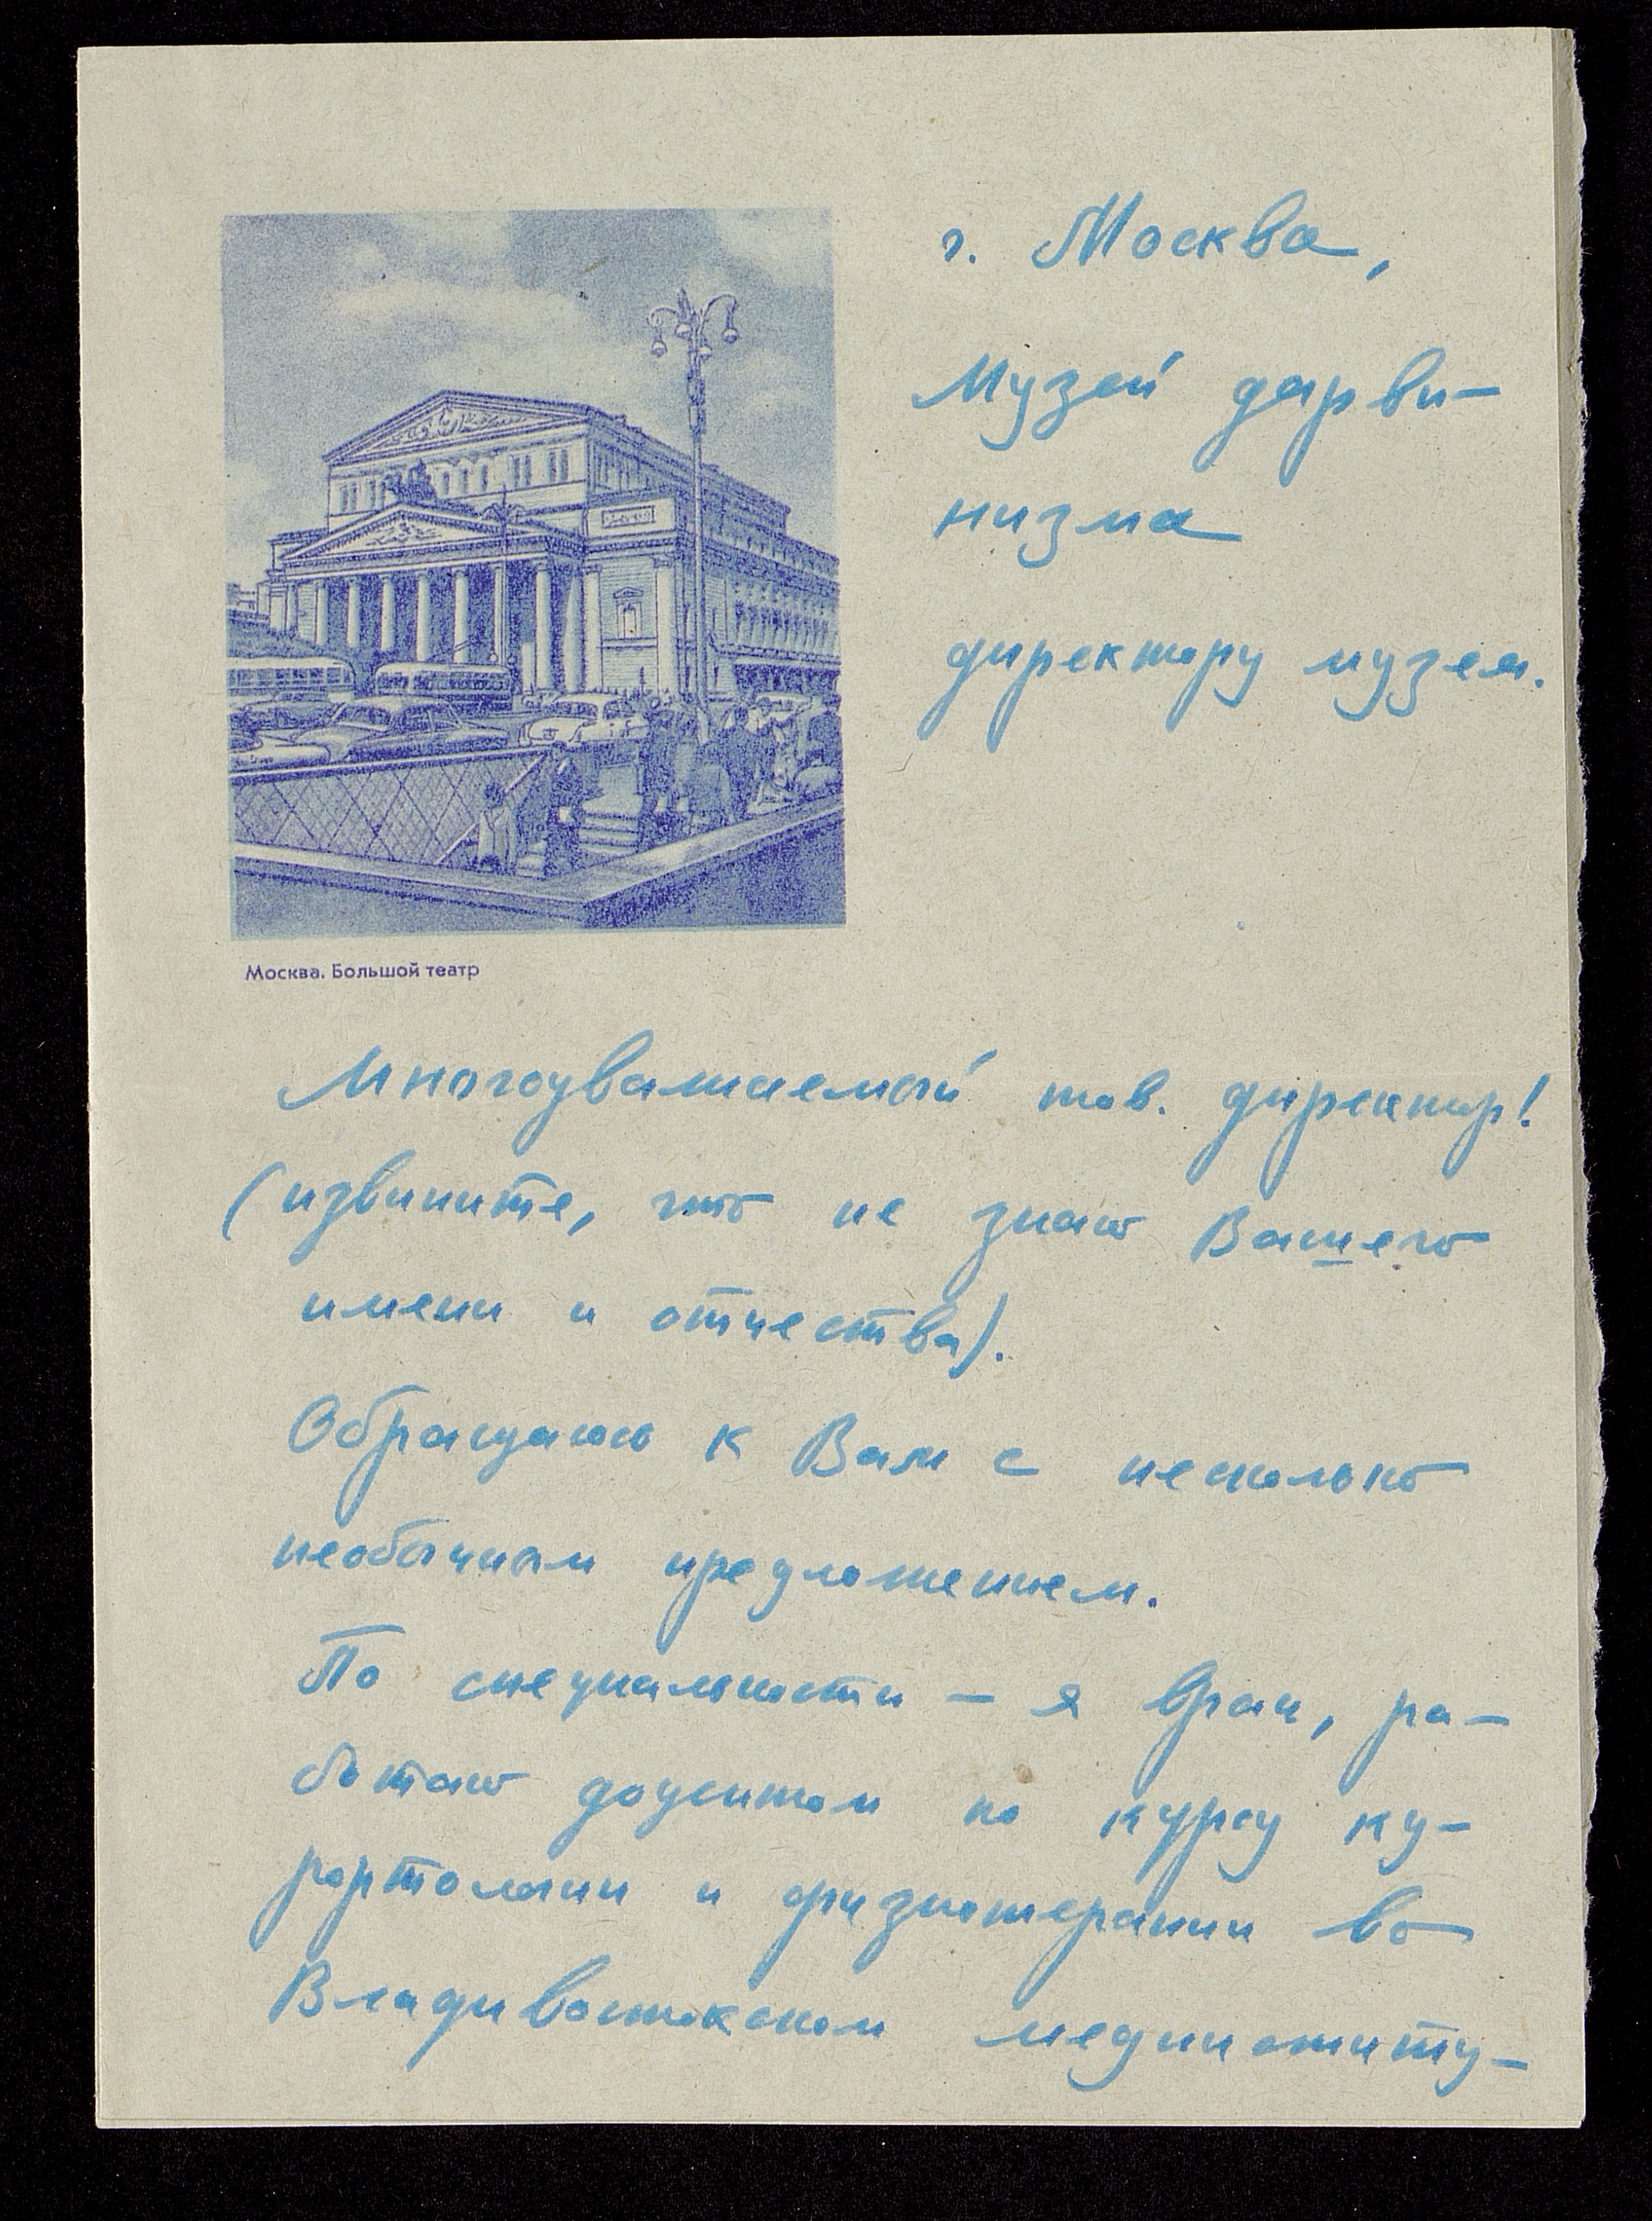 г. Москва,
Музей дарви-
низма
директору музея.
Москва. Большой театр
Многоуважаемый тов. директор!
(извините, что не знаю Вашего
имени и отчества).
Обращаюсь к Вам с несколько
необычным предложением.
По специальности - я врач, ра-
ботаю доцентом по курсу ку-
рортологии и физиотерапии во
Владивостокском мединститу-